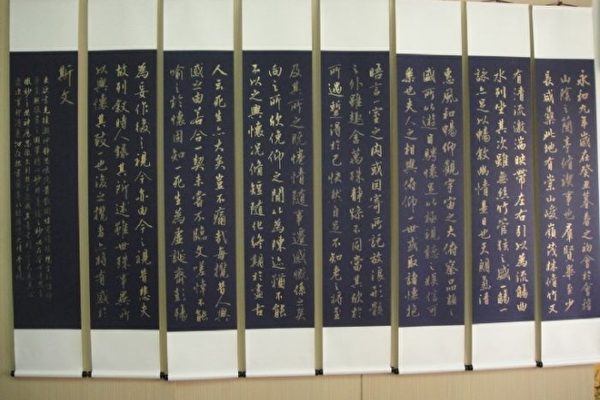 永和九年歲在癸丑暮春之初會于會稽
山陰之蘭亭脩禊事也群賢畢至少
長咸集此地有崇山峻嶺茂林脩竹又
有清流激湍映帶左右引以為流觴曲
水列坐其次雖無絲竹管弦之盛一觴一
詠亦足以暢敘幽情是日也天朗氣清
惠風和暢仰觀宇宙之大俯察品類之
盛所以遊目騁懷足以極視聽之娛信可
樂也夫人之相與俯仰一世或取諸懷抱
晤言一室之內或因寄所託放浪形骸
之外雖趣舍萬殊靜躁不同當其欣於
所遇暫得於己快然自足不知老之將至
及其所之既惓情隨事遷感慨係之矣
向之所欣俛仰之間以為陳迹猶不能
不以之興懷況脩短隨化終期於盡古
人云死生亦大矣豈不痛哉每攬昔人興
感之由若合一契未嘗不臨文嗟悼不能
喻之於懷固知一死生為虛誕齊彭殤
為妄作後之視今亦由今之視昔悲夫
故列敘時人錄其所述雖世殊事異所
以興懷其致一也後之攬者亦將有感於
斯文